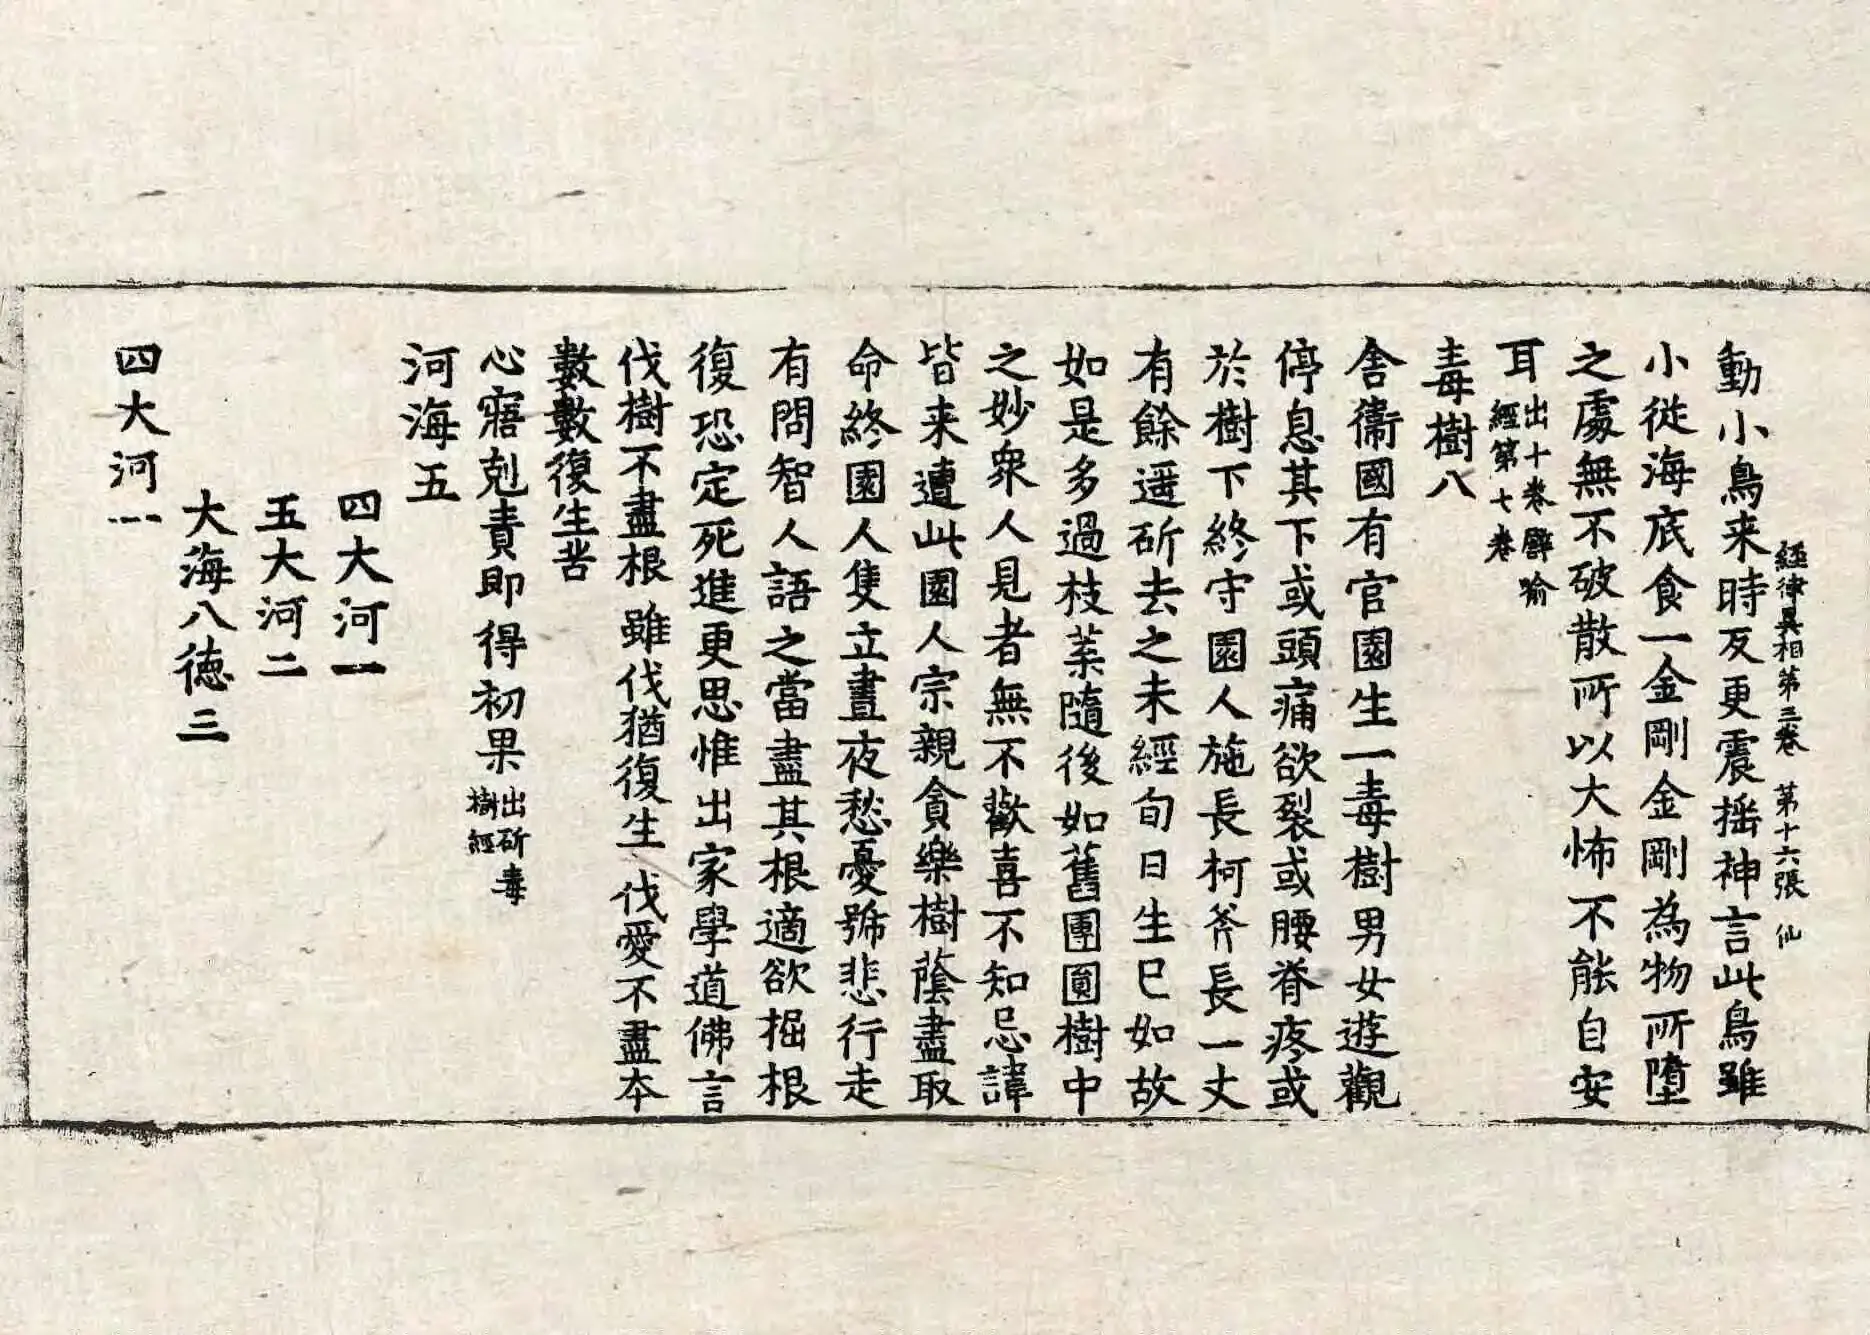 經律異相第三卷 第十六張 仙
動小鳥来時反更震摇神言此鳥雖
小從海底食一金剛金剛為物所墮
之處無不破散所以大怖不能自安
耳出十卷譬喻
經第七卷
毒樹八
舎衞國有官園生一毒樹男女遊觀
停息其下或頭痛欲裂或腰脊疼或
於樹下終守園人施長柯斧長一丈
有餘遥斫去之未經旬日生已如故
如是多過枝葉隨後如舊團圓樹中
之妙衆人見者無不歡喜不知忌諱
皆来遭此園人宗親貪樂樹蔭盡取
命終園人隻立晝夜愁憂號悲行走
有問智人語之當盡其根適欲掘根
復恐定死進更思惟出家學道佛言
伐樹不盡根 雖伐猶復生 伐愛不盡本
數數復生苦
心寤剋責即得初果出斫毒
樹經
河海五
四大河一
五大河二
大海八徳三
四大河一